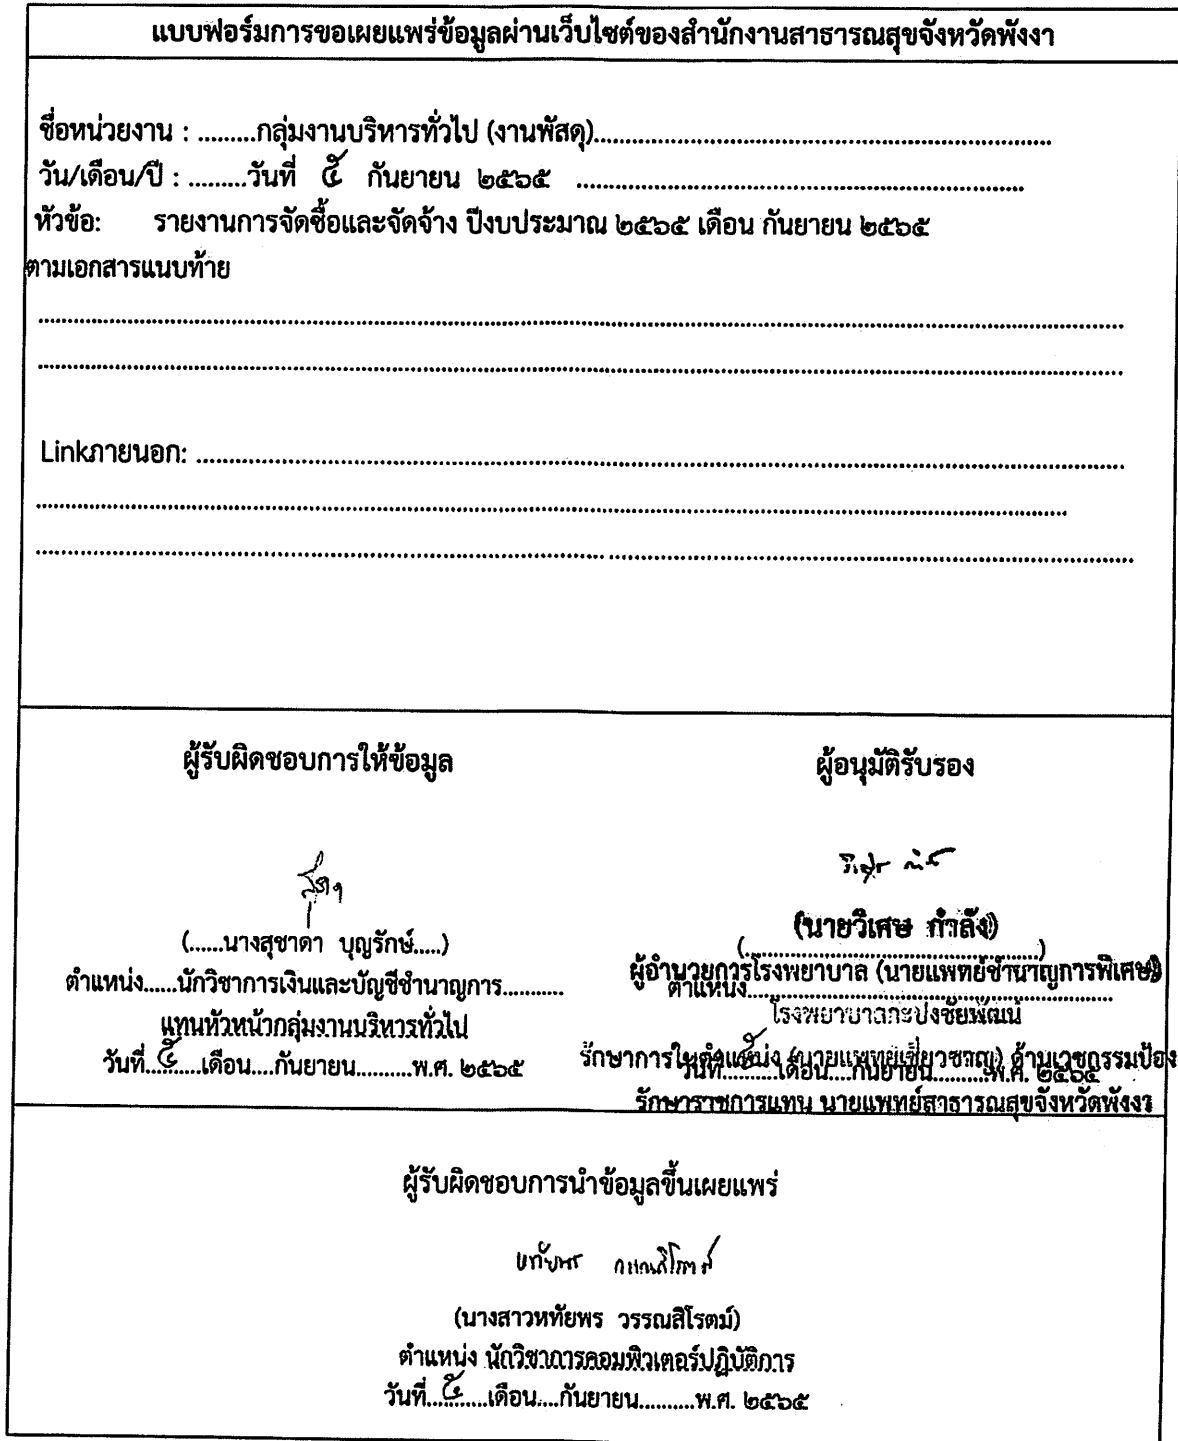 แบบฟอร์มการขอเผยแพร่ข้อมูลผ่านเว็บไซต์ของสำนักงานสาธารณสุขจังหวัดพังงา
ชื่อหน่วยงาน : .........กลุ่มงานบริหารทั่วไป (งานพัสดุ)..........
วัน/เดือน/ปี : .........วันที่ ๕ กันยายน ๒๕๖๕ ..........
หัวข้อ: รายงานการจัดซื้อและจัดจ้าง ปีงบประมาณ ๒๕๖๕ เดือน กันยายน ๒๕๖๕
ตามเอกสารแนบท้าย
Linkภายนอก: ..........
ผู้รับผิดชอบการให้ข้อมูล
ผู้อนุมัติรับรอง
(......นางสุชาดา บุญรักษ์.....)
ตำแหน่ง......นักวิชาการเงินและบัญชีชำนาญการ...........
แทนหัวหน้ากลุ่มงานบริหารทั่วไป
วันที่..๕....เดือน....กันยายน..........พ.ศ. ๒๕๖๕
(นายวิเศษ กำลัง)
ผู้อำนวยการโรงพยาบาล (นายแพทย์ชำนาญการพิเศษ)
ตำแหน่ง..........
โรงพยาบาลกะปงชัยพัฒน์
รักษาการในตำแหน่ง (นายแพทย์เชี่ยวชาญ) ด้านเวชกรรมป้อง
วันที่..๕....เดือน....กันยายน..........พ.ศ. ๒๕๖๕
รักษาราชการแทน นายแพทย์สาธารณสุขจังหวัดพังงา
ผู้รับผิดชอบการนำข้อมูลขึ้นเผยแพร่
หทัยพร วรรณสิโรตม์
(นางสาวหทัยพร วรรณสิโรตม์)
ตำแหน่ง นักวิชาการคอมพิวเตอร์ปฏิบัติการ
วันที่..๕....เดือน....กันยายน..........พ.ศ. ๒๕๖๕